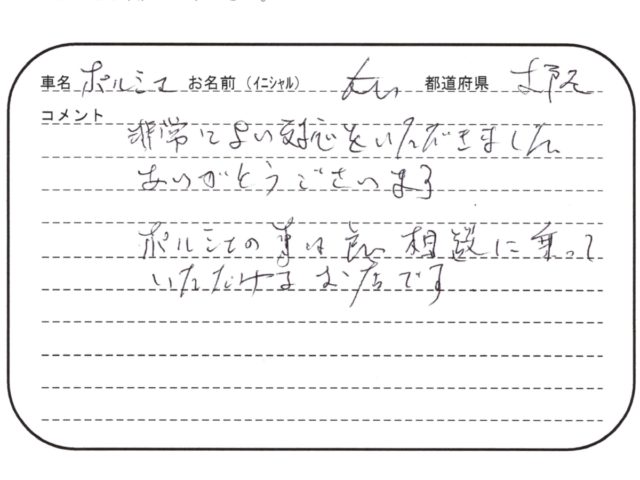 車名 ポルシェ お名前（イニシャル） 都道府県
コメント
非常によい対応をいただきました
ありがとうございます
ポルシェの事は良い相談に乗って
いただけるお店です